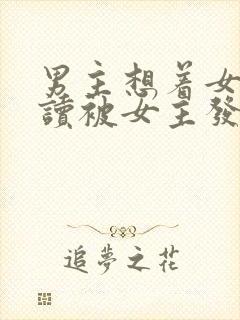 男主想着女
讀被女主發
追夢之花